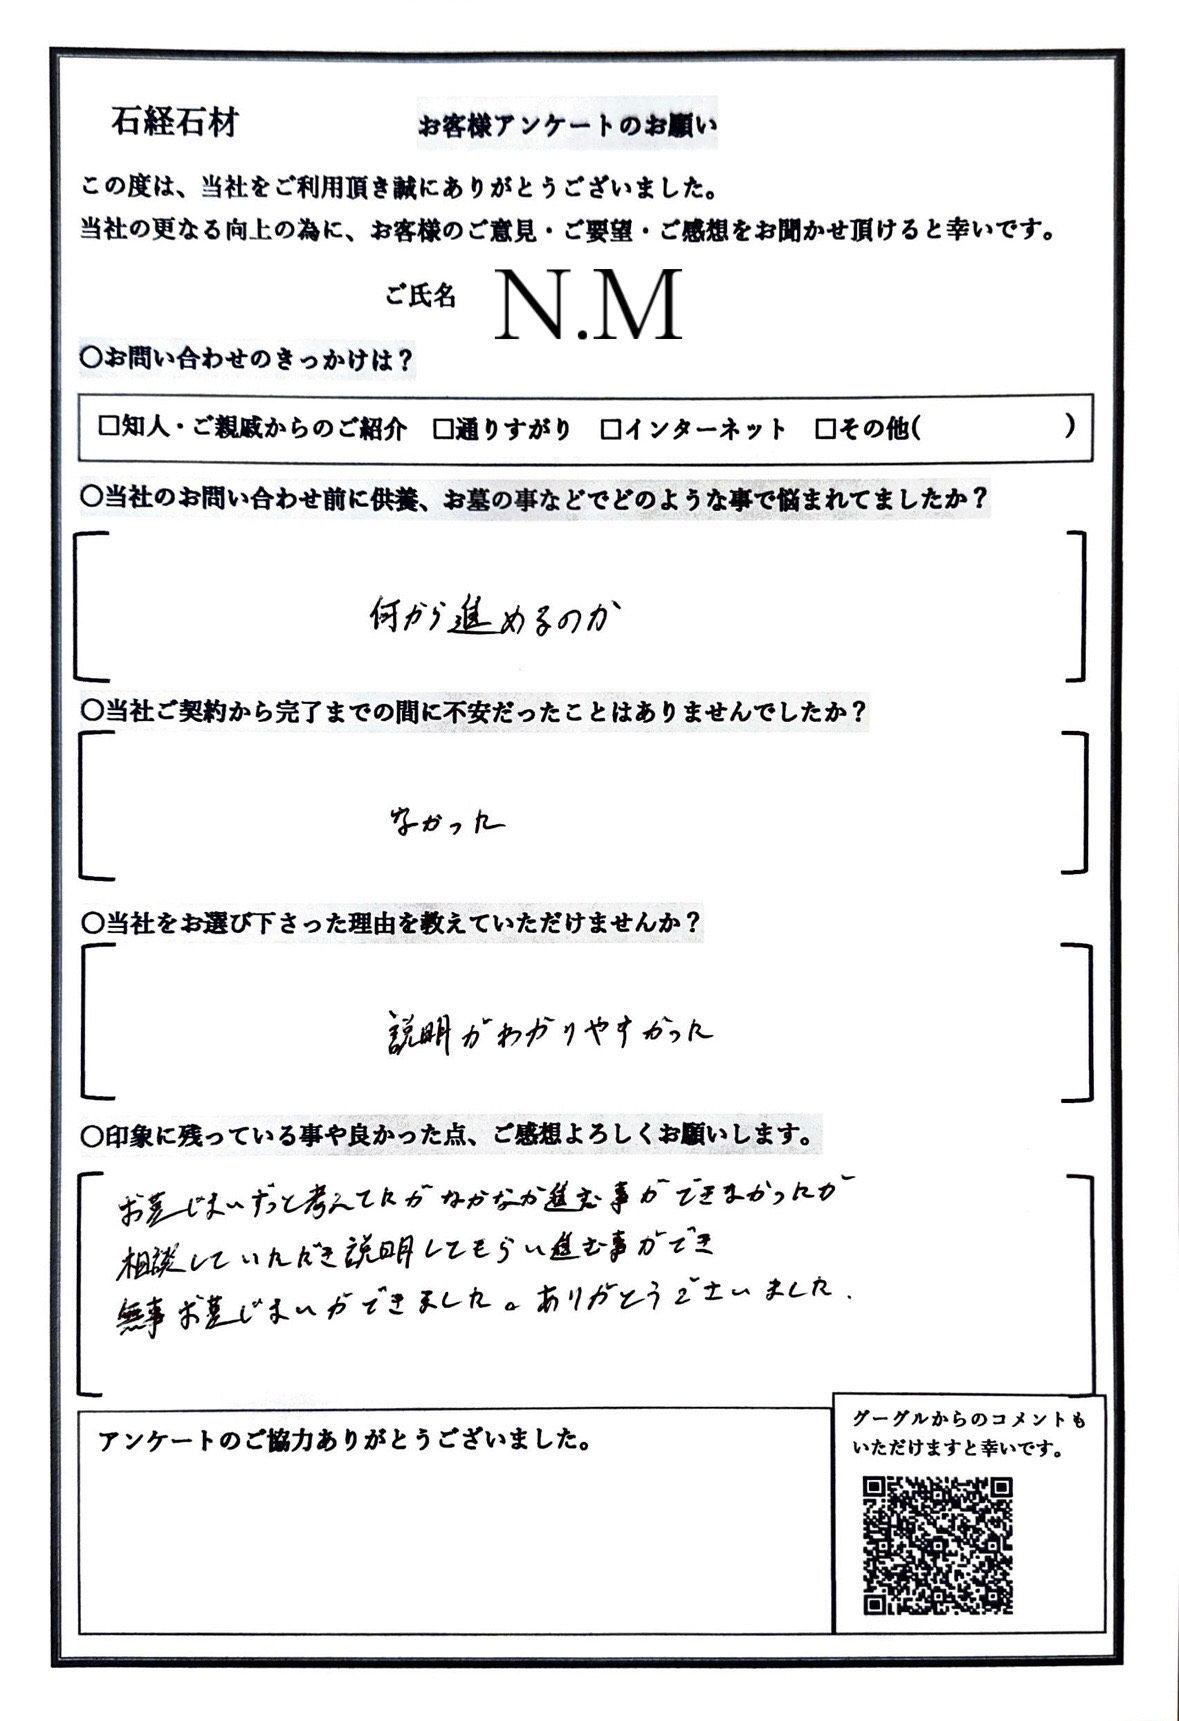 石経石材
お客様アンケートのお願い
この度は、当社をご利用頂き誠にありがとうございました。
当社の更なる向上の為に、お客様のご意見・ご要望・ご感想をお聞かせ頂けると幸いです。
ご氏名 N.M
〇お問い合わせのきっかけは？
□知人・ご親戚からのご紹介 □通りすがり □インターネット □その他( )
〇当社のお問い合わせ前に供養、お墓の事などでどのような事で悩まれてましたか？
何から進めるのか
〇当社ご契約から完了までの間に不安だったことはありませんでしたか？
なかった
〇当社をお選び下さった理由を教えていただけませんか？
説明がわかりやすかった
〇印象に残っている事や良かった点、ご感想よろしくお願いします。
お墓じまいずっと考えてたがなかなか進む事ができなかったが
相談していただき説明してもらい進む事ができ
無事お墓じまいができました。ありがとうございました.
アンケートのご協力ありがとうございました。
グーグルからのコメントも
いただけますと幸いです。